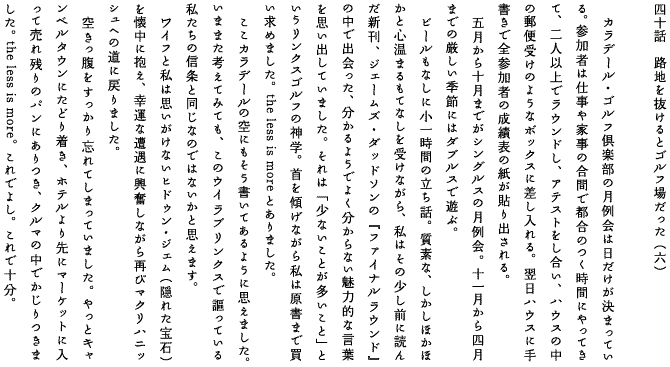 四十話　路地を抜けるとゴルフ場だった（六）
　カラデール・ゴルフ倶楽部の月例会は日だけが決まってい
る。参加者は仕事や家事の合間で都合のつく時間にやってき
て、二人以上でラウンドし、アテストをし合い、ハウスの中
の郵便受けのようなボックスに差し入れる。翌日ハウスに手
書きで全参加者の成績表の紙が貼り出される。
　五月から十月までがシングルスの月例会。十一月から四月
までの厳しい季節にはダブルスで遊ぶ。
　ビールもなしに小一時間の立ち話。質素な、しかしほかほ
かと心温まるもてなしを受けながら、私はその少し前に読ん
だ新刊、ジェームズ・ダッドソンの『ファイナルラウンド』
の中で出会った、分かるようでよく分からない魅力的な言葉
を思い出していました。それは「少ないことが多いこと」と
いうリンクスゴルフの神学。首を傾げながら私は原書まで買
い求めました。the less is more とありました。
　ここカラデールの空にもそう書いてあるように思えました。
いままた考えてみても、このウイラブリンクスで謳っている
私たちの信条と同じなのではないかと思えます。
　ワイフと私は思いがけないヒドゥン・ジェム（隠れた宝石）
を懐中に抱え、幸運な遭遇に興奮しながら再びマクリハニッ
シュへの道に戻りました。
　空きっ腹をすっかり忘れてしまっていました。やっとキャ
ンベルタウンにたどり着き、ホテルより先にマーケットに入
って売れ残りのパンにありつき、クルマの中でかじりつきま
した。the less is more。これでよし。これで十分。